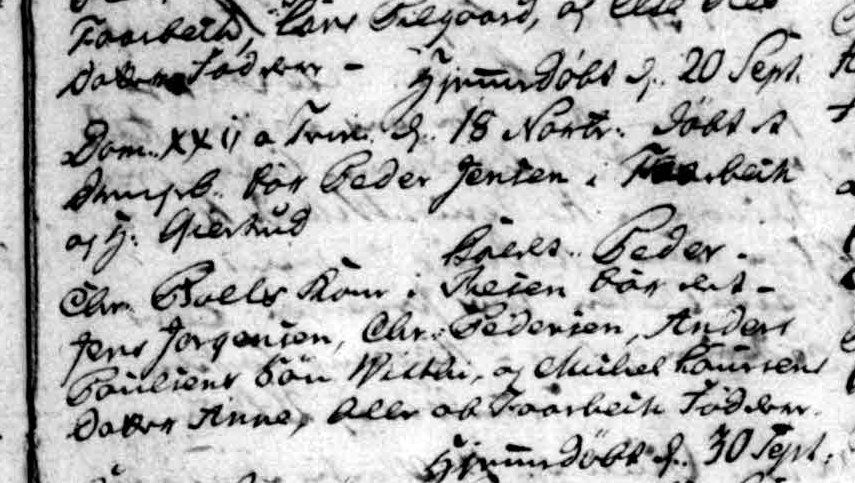 Faarbech, Lars Filgaard, og Else
Datter Faddere – Hjemmedöbt d. 20 Sept.
Dom. XXII a Trin. d. 18 Novbr. döbt et
barn for Peder Jensen i Faarbech
og H. Giertrud kaldet Peder.
Chr. Poels Kone i Skeien bar det –
Jens Jorgensen, Chr. Pedersen, Anders
Poulsens Sön og Michel Laursens
Datter Anne, alle af Faarbech Fadder.
Hjemmedöbt d. 30 Sept.